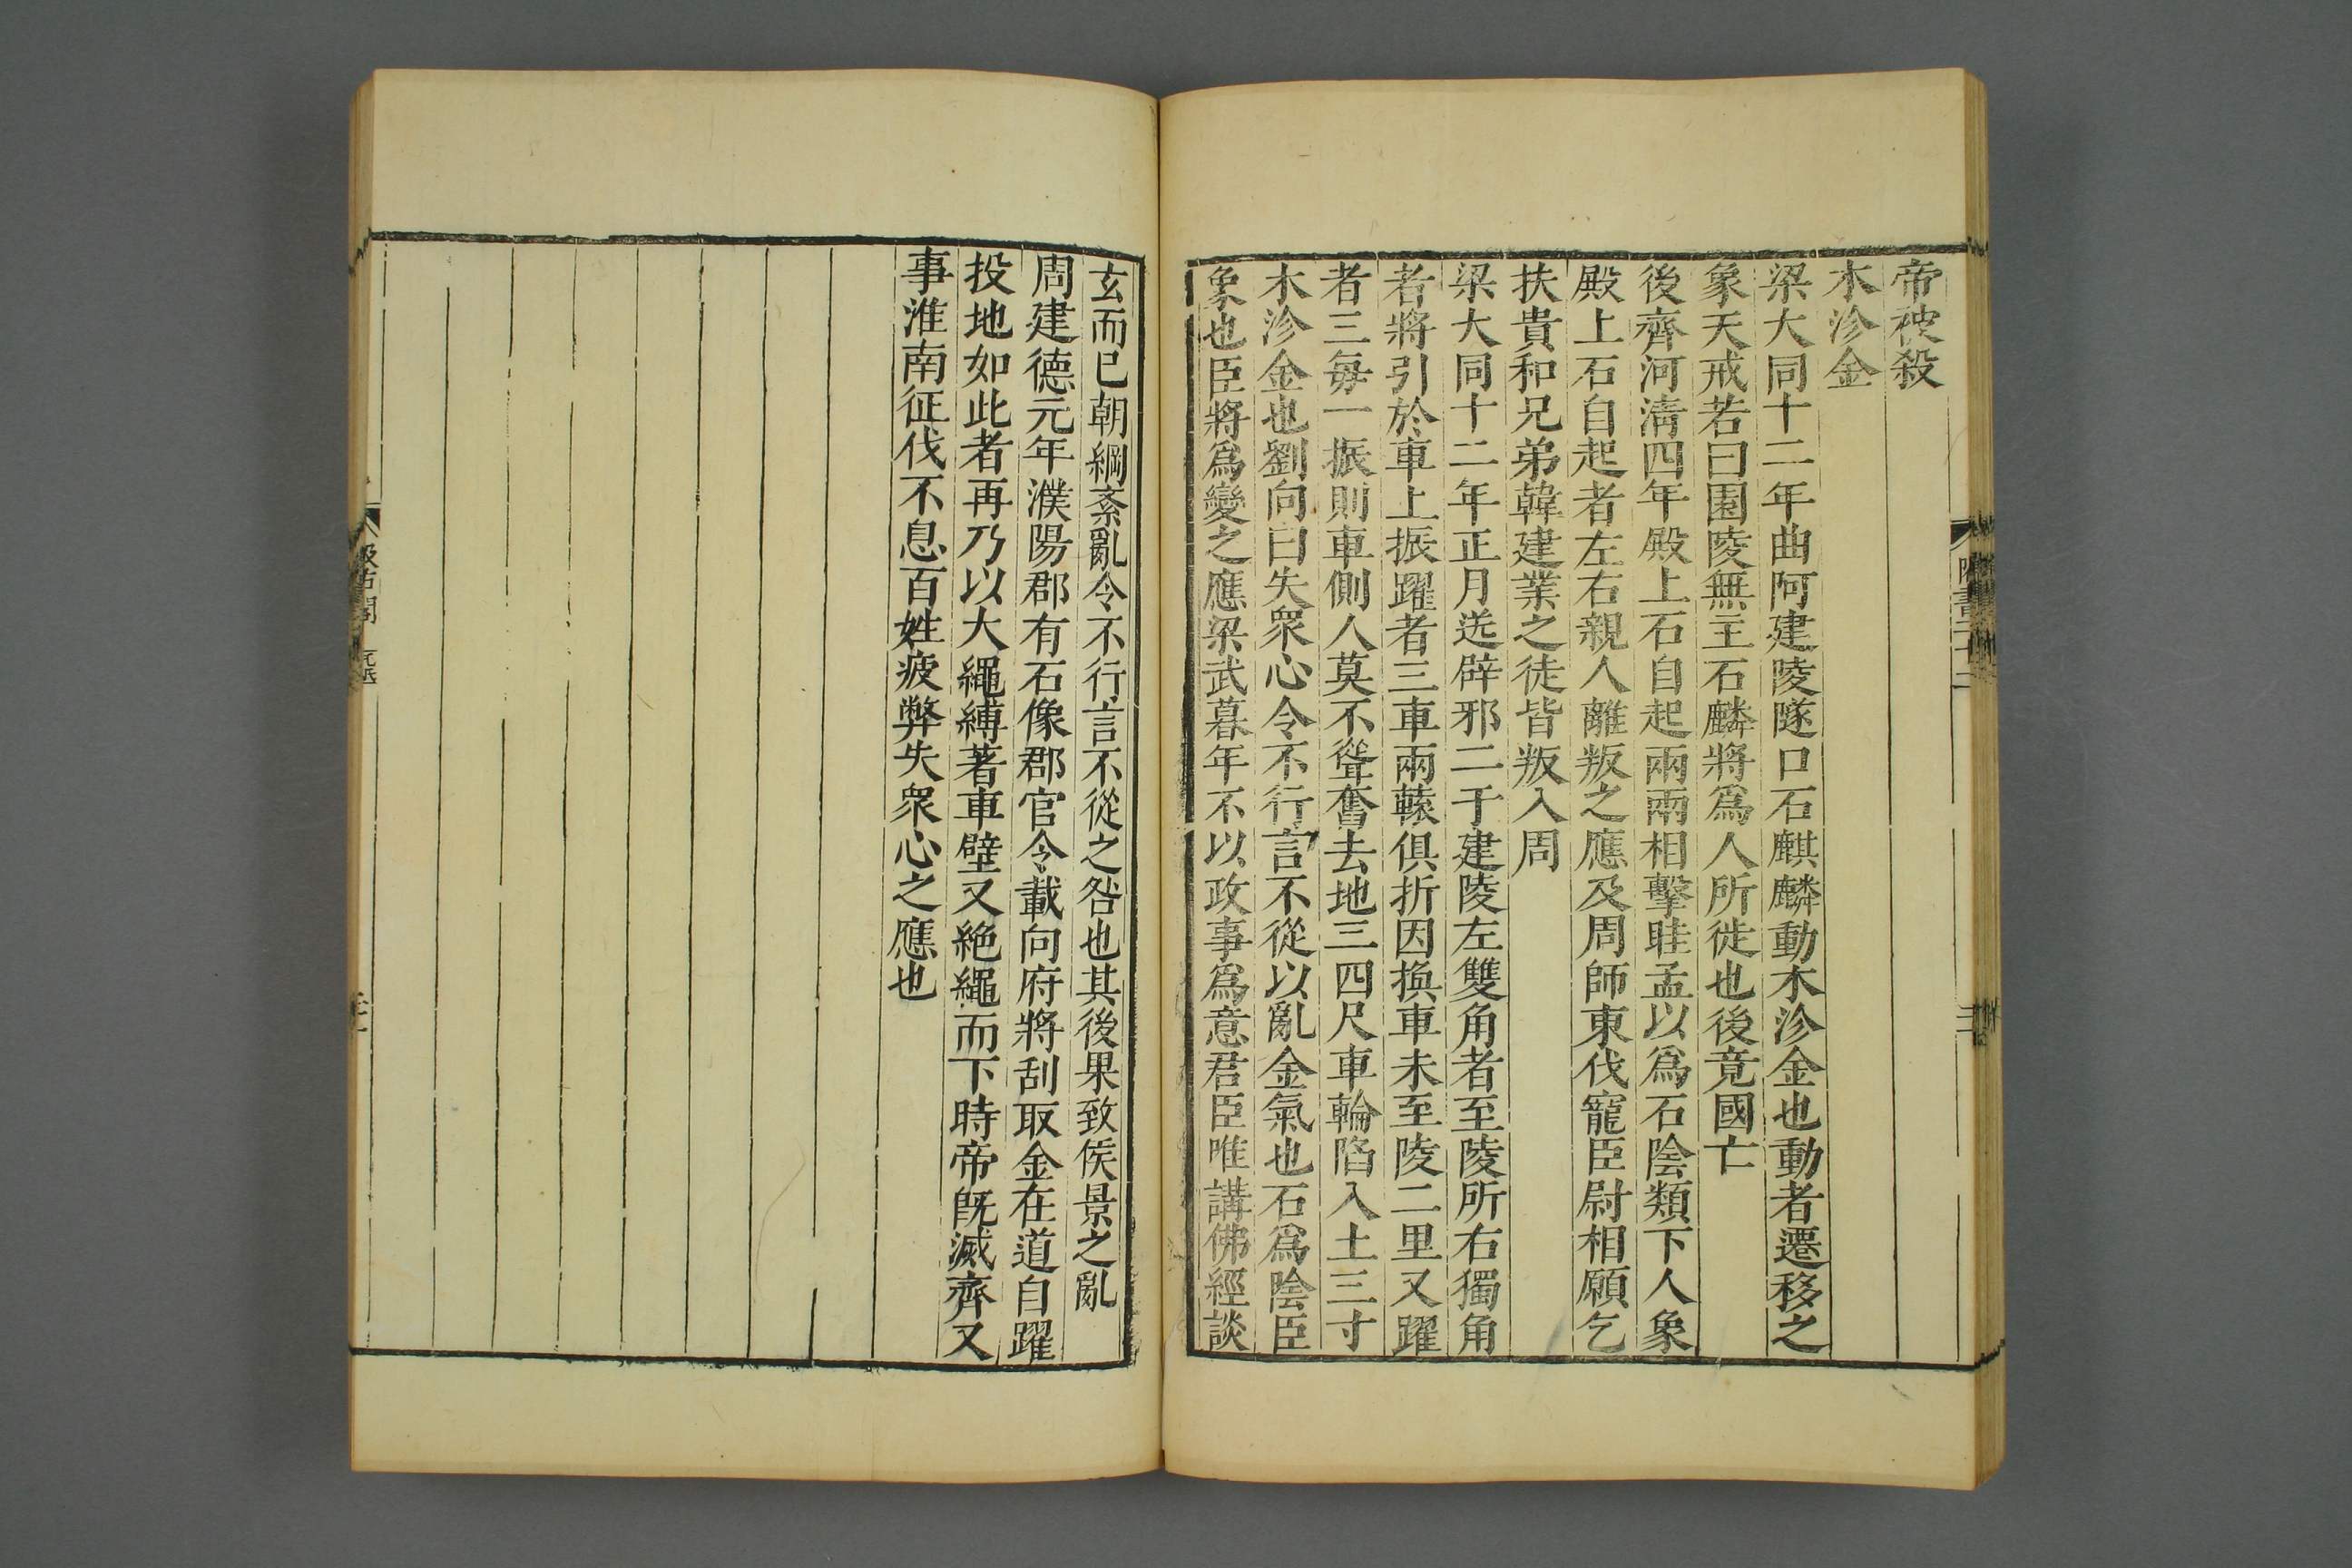 帝被殺
木沴金
梁大同十二年曲阿建陵隧口石麒麟動木沴金也動者遷移之
象天戒若曰園陵無主石麟將爲人所徙也後竟國亡
後齊河淸四年殿上石自起兩兩相擊眭孟以爲石陰類下人象
殿上石自起者左右親人離叛之應及周師東伐寵臣尉相願乞
扶貴和兄弟韓建業之徒皆叛入周
梁大同十二年正月送辟邪二于建陵左雙角者至陵所右獨角
者將引於車上振躍者三車兩轅俱折因換車未至陵二里又躍
者三每一振則車側人莫不聳奮去地三四尺車輪陷入土三寸
木沴金也劉向曰失衆心令不行言不從以亂金氣也石爲陰臣
象也臣將爲變之應梁武暮年不以政事爲意君臣唯講佛經談
玄而已朝綱紊亂令不行言不從之咎也其後果致侯景之亂
周建德元年濮陽郡有石像郡官令載向府將刮取金在道自躍
投地如此者再乃以大繩縛著車壁又絶繩而下時帝旣滅齊又
事淮南征伐不息百姓疲弊失衆心之應也